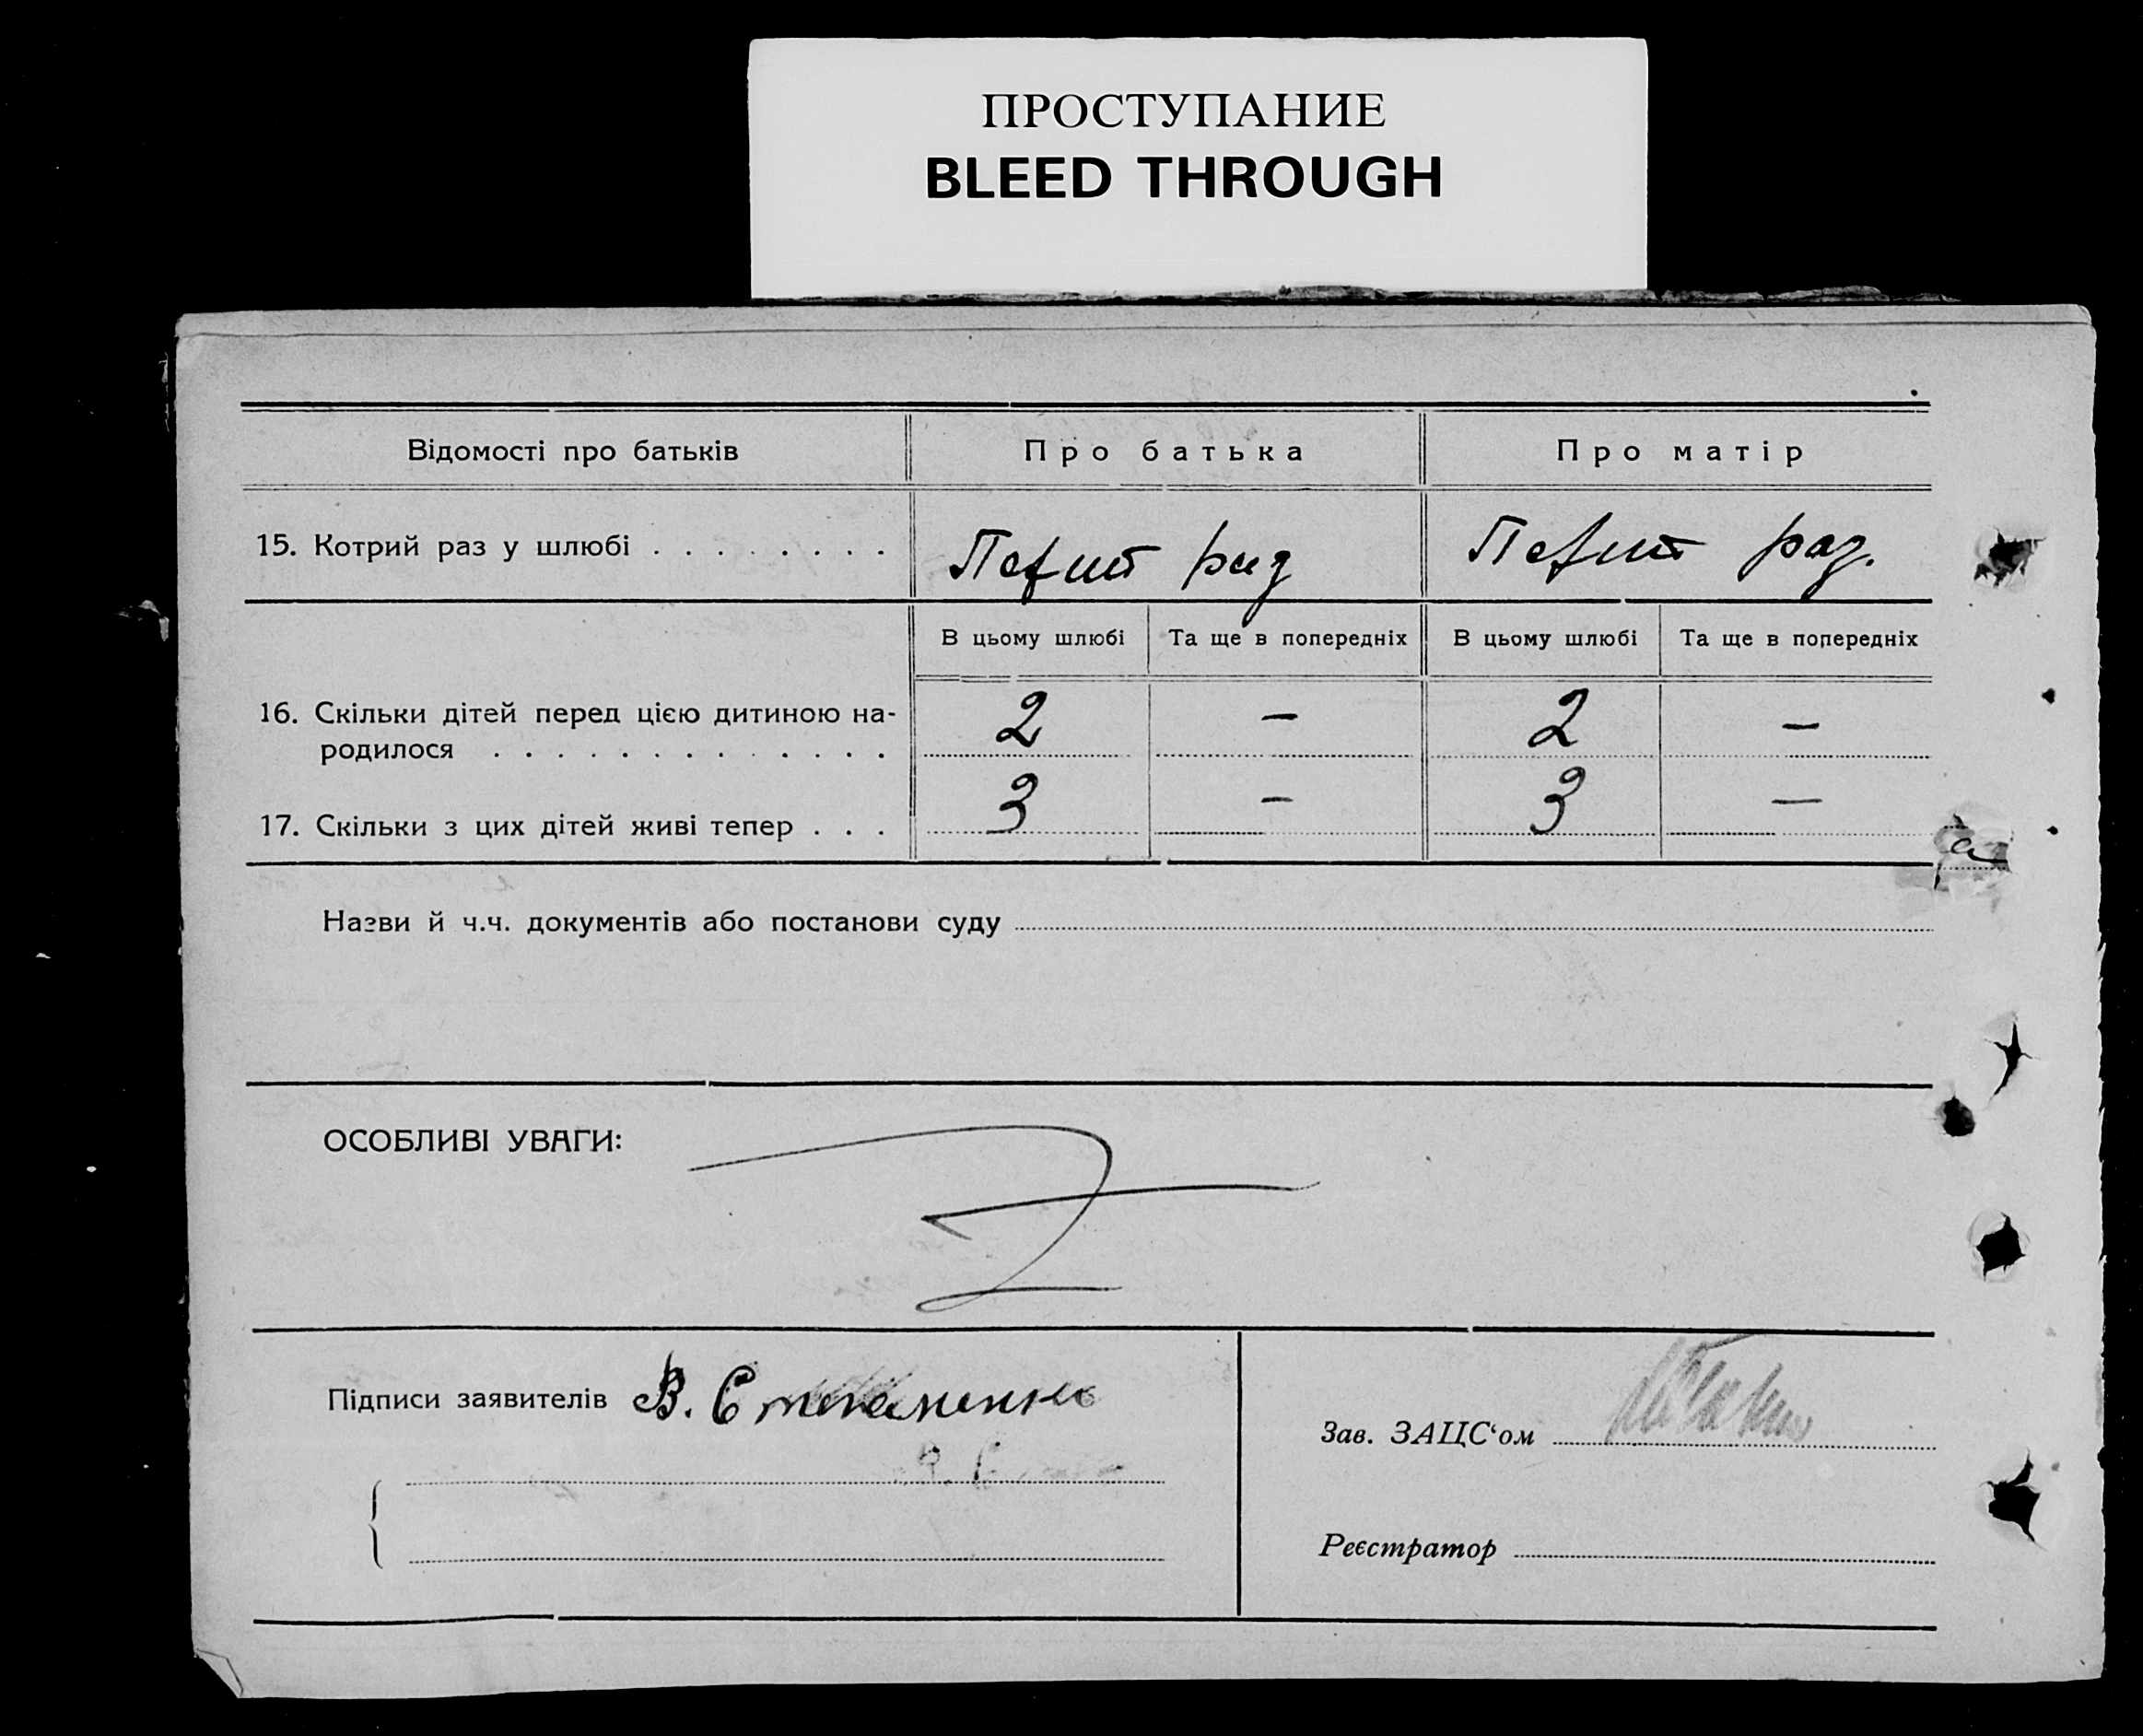 ПРОСТУПАНИЕ
BLEED THROUGH
Відомості про батьків
Про батька
Про матір
15. Котрий раз у шлюбі . . . . . . . .
Перший раз
Перший раз.
В цьому шлюбі
Та ще в попередніх
В цьому шлюбі
Та ще в попередніх
16. Скільки дітей перед цією дитиною на-
родилося . . . . . . . . . . . . .
2
—
2
—
17. Скільки з цих дітей живі тепер . . .
3
—
3
—
Назви й ч.ч. документів або постанови суду
ОСОБЛИВІ УВАГИ:
Підписи заявителів В. Степаненко
Зав. ЗАЦС‘ом
Реєстратор